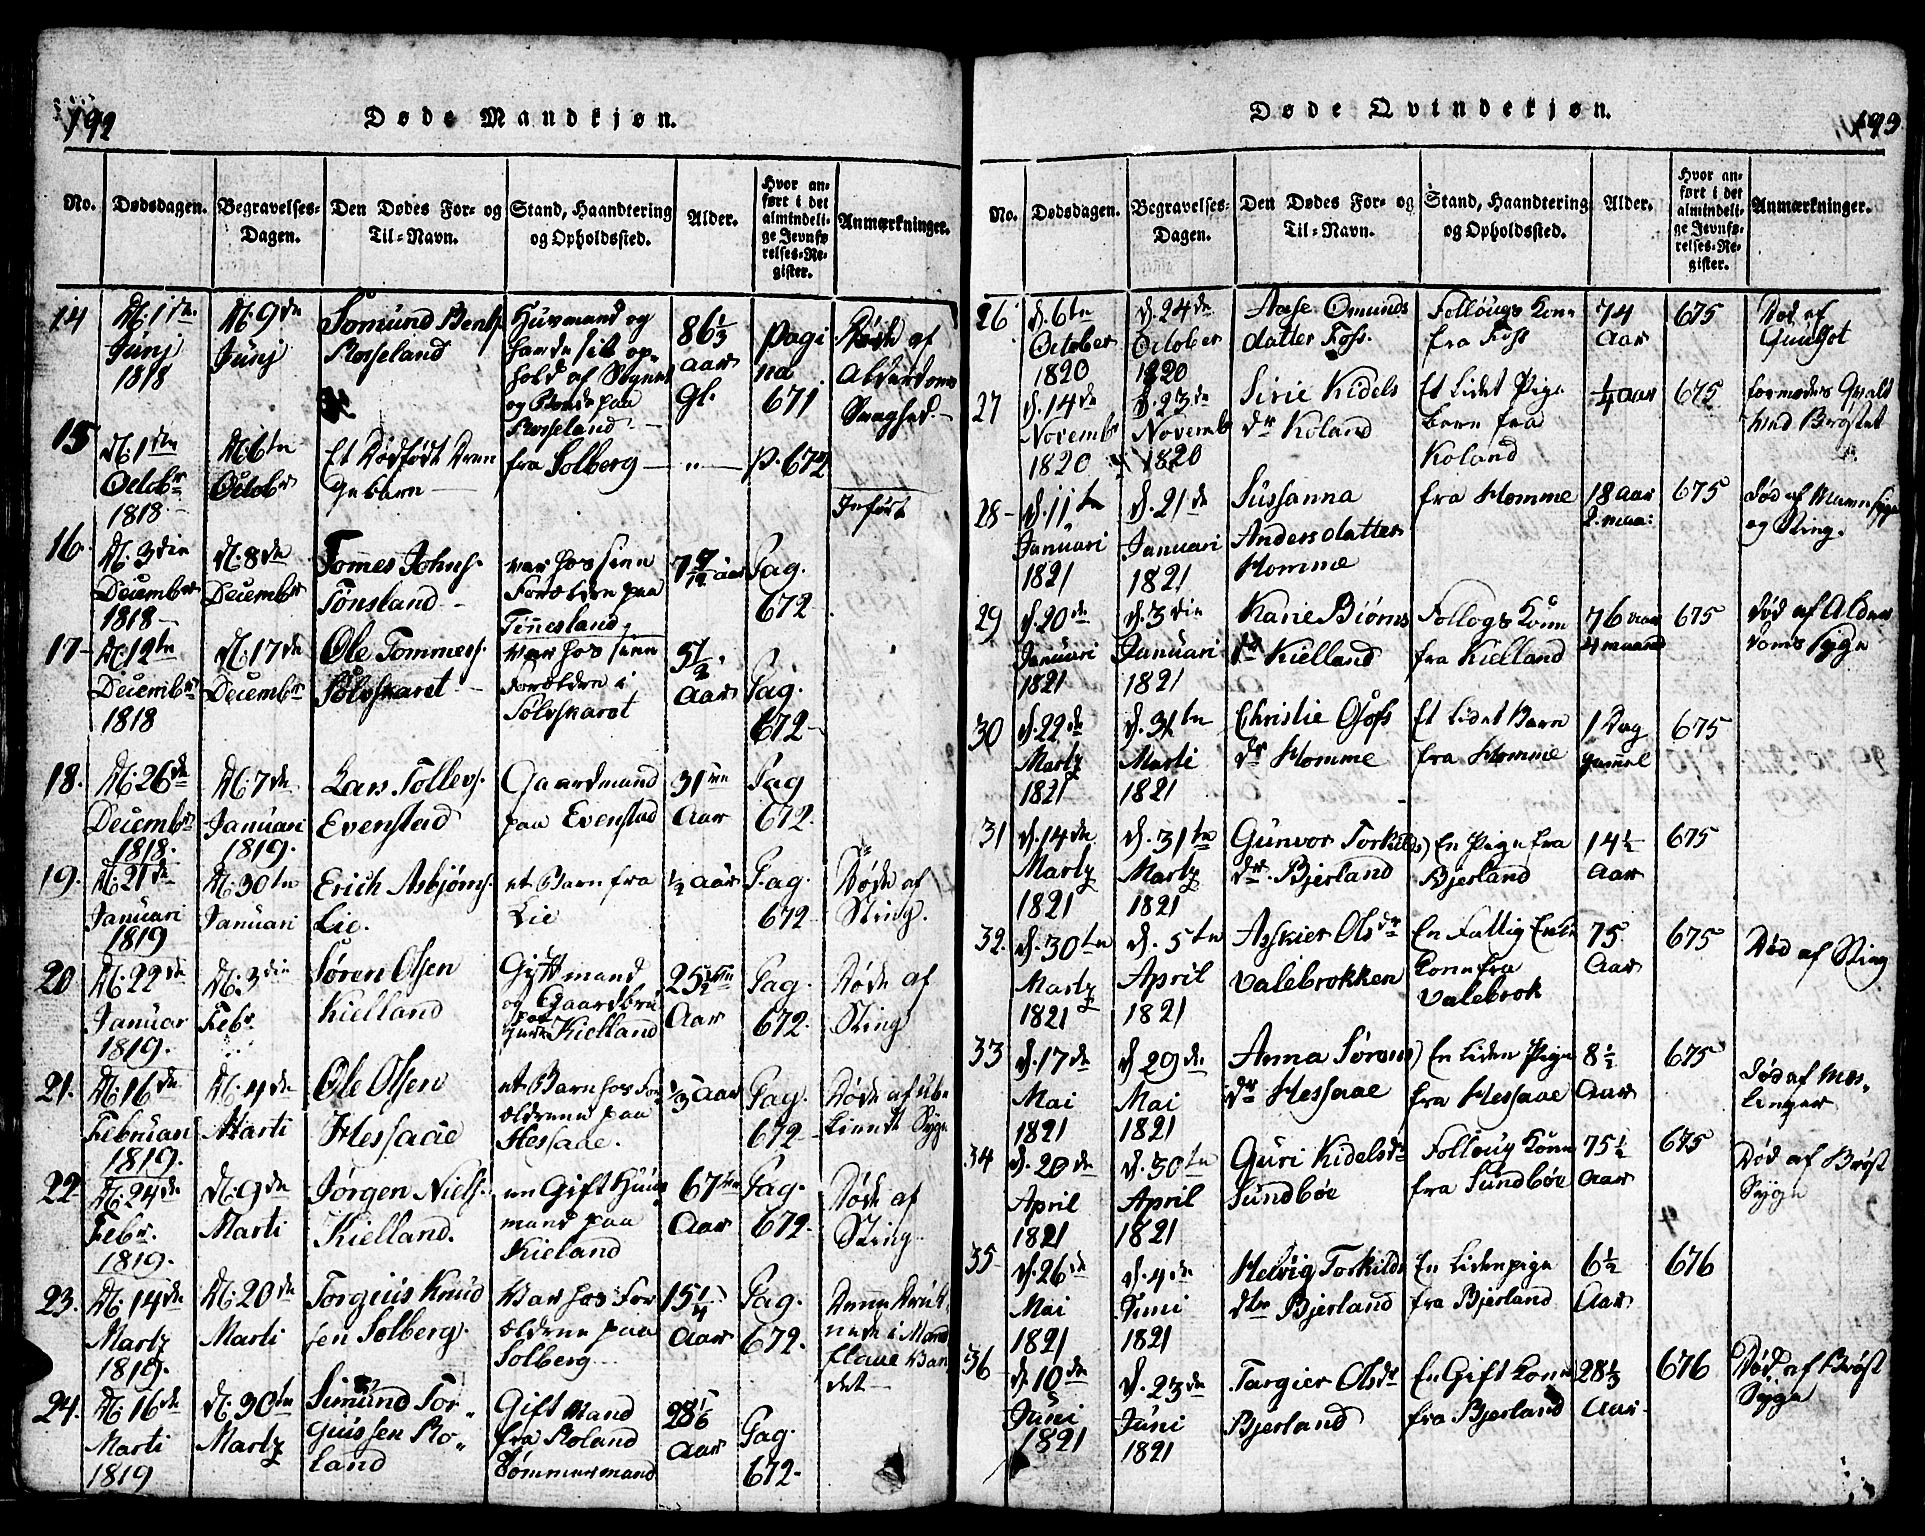 192
Døde Mandkjøn.
No. Dødsdagen. Begravelses-Dagen. Den Dødes For- og Til-Navn. Stand, Haandtering og Opholdssted. Alder. Hvor anført i det almindelige Jevnførelses-Register. Anmærkninger.
14 1ste Junj 1818 9de Junj Rosseland Huusmand og havde sit ophold af paa Rosseland 86½ aar gl. pagina 671 Døde af Alderdoms Svaghed.
15 1ste Octobr 1818 6te Octobr Et dødfødt Drengebarn fra Solberg p. 672
Inført
16. 3die Decembr 1818 8de Decembr Tomes Johns. Tønsland var hos sine Forældre paa Tinnesland 7 aar Pag. 672
17 12te Decembr 1818 17de Decembr Ole Tommess. Sølvskaret var hos sine Forældre i Sølvskaret 5½ Aar Pag. 672
18. 26de Decembr 1818. 7de Januari 1819. Lars Tollevs. Evenstad Gaardmand paa Evenstad 31 Aar Pag 672
19. 21de Januari 1819 30te Januari Erich Asbjørns. Lie. et Barn fra Lie ½ Aar Pag. 672 Døde af Sting.
20 22de Januar 1819. 3die Febr. Søren Olsen Kielland Gift mand og Gaardbru- paa Kielland 25½ Aar Pag. 672. Døde af Sting
21. 16de Februari 1819. 4de Marti Ole Olsen Hessaae et Barn hos Forældrene paa Hessaae. ⅓ Aar Pag. 672 Døde af ubekiendt Syge
22 24de Febr. 1819. 9de Marti Jørgen Niels. Kielland. en Gift Huusmand paa Kieland 67 Aar Pag. 672. Døde af Sting
23. 14de Marty 1819. 20de Marti Torgius Knudsen Solberg. Var hos Forældrene paa Solberg 15¼ Aar Pag. 672. Denne Druknede i
24. 16de Marti 1819 30te Marty Simund Torguissen Roland Gift Mand fra Roland Tømmermand 28⅙ Aar Pag. 672
193
Døde Qvindekjøn.
No. Dødsdagen. Begravelses-Dagen. Den Dødes For- og Til-Navn. Stand, Haandtering og Opholdssted. Alder. Hvor anført i det almindelige Jevnførelses-Register. Anmærkninger.
26 d. 6te October 1820 d. 24de October 1820 Aase Omunds datter Foss. Follougs Kone fra Foss 74 Aar 675 Død af
27 d. 14de Novembr 1820 d. 23de Novembr 1820 Sirie Kidels dr Koland Et lidet Pige barn fra Koland ¼ aar 675 formedes Qvalt ved Brøstet
28 d. 11te Januari 1821 d. 21de Januari 1821 Sussanna Andersdatter Homme fra Homme 18 aar 2. maa: 675 Død af og Sting.
29 d. 20de Januari 1821 d. 3die Januari 1821 Karie Biørns dr Kielland Follogs Kone fra Kielland 76 aar 4 maaned 675 død af Alderdoms Syge
30 d. 22de Marty 1821 d. 31te Marti 1821 Christie Osofs dr Homme Et lidet Barn fra Homme 1 Dag gammel 675
31 d. 14de Marty 1821 d. 31te Marty 1821 Gunvor Torkilds dr. Bjerland En Pige fra Bjerland 14½ Aar 675
32. d. 30te Marty 1821 d. 5te April 1821 Asskier Olsdr Valebrokken En Fattig Enke Kone fra Valebrok 75 Aar 675 Død af Sting
33 d. 17de Mai 1821 d. 29de Mai 1821 Anna Sørens dr Hessaae En liden Pige fra Hessaae 8½ Aar 675 Død af Meslinger
34 d. 20de April 1821 d. 30te April 1821 Guri Kidelsdr Sundbøe Folloug Kone fra Sundbøe 75½ Aar 675 Død af Brøst Syge
35 d. 26de Mai 1821 d. 4de Juni 1821 Helvig Torkilds dter Bjerland En Liden pige fra Bjerland 6½ Aar 676
36 d. 10de Juni 1821 d. 23de Juni 1821 Targier Olsdr Bjerland En Gift Kone fra Bjerland 28⅓ Aar 676 Død af Brøst Syge